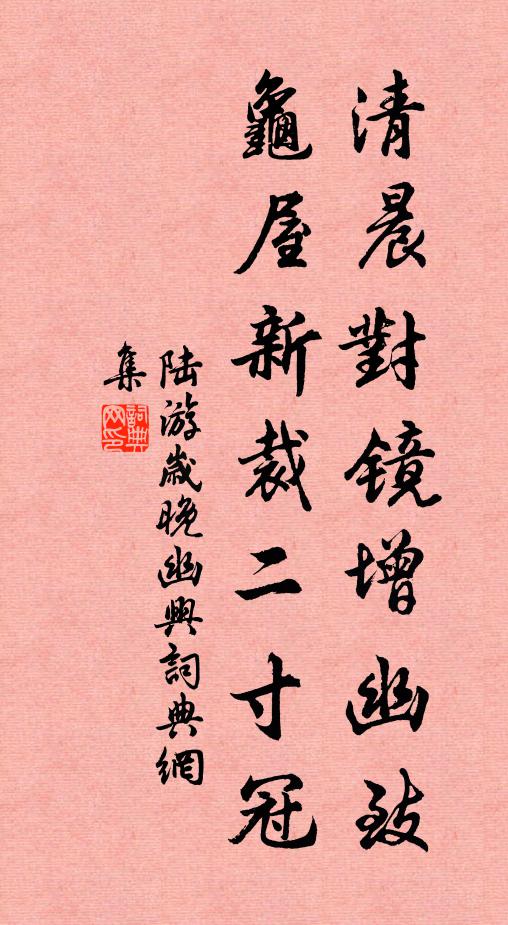 清晨對镜增幽致
龜屋新裁二寸冠
陆游歲晚幽興詞典網
集
詞典
网印